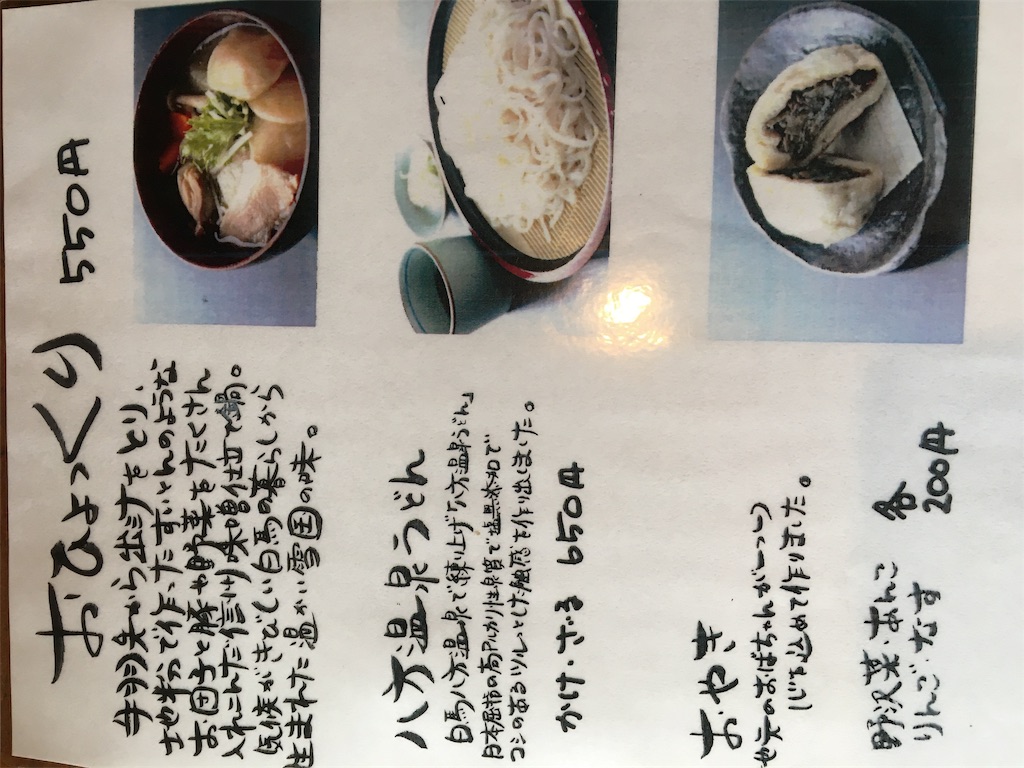 おひょっくり 550円
キジ矢から出ミナをとり、
地粉で作ったすいとんのような
お団子と豚や野菜をたくさん
入れこんだ信州味噌仕立て鍋。
気候がきびしい白馬の暮らしから
生まれた温かい雪国の味。
八方温泉うどん
白馬八方温泉で練り上げ「八方温泉うどん」
日本屈市の高アルカリ性泉質で塩無添加で
コシのあるツルッとした触感を作り出しました。
かけ・ざる 650円
おやき
地元のおばちゃんが一つ一つ
心を込めて作りました。
野沢菜 あんこ 各
りんご・なす 200円